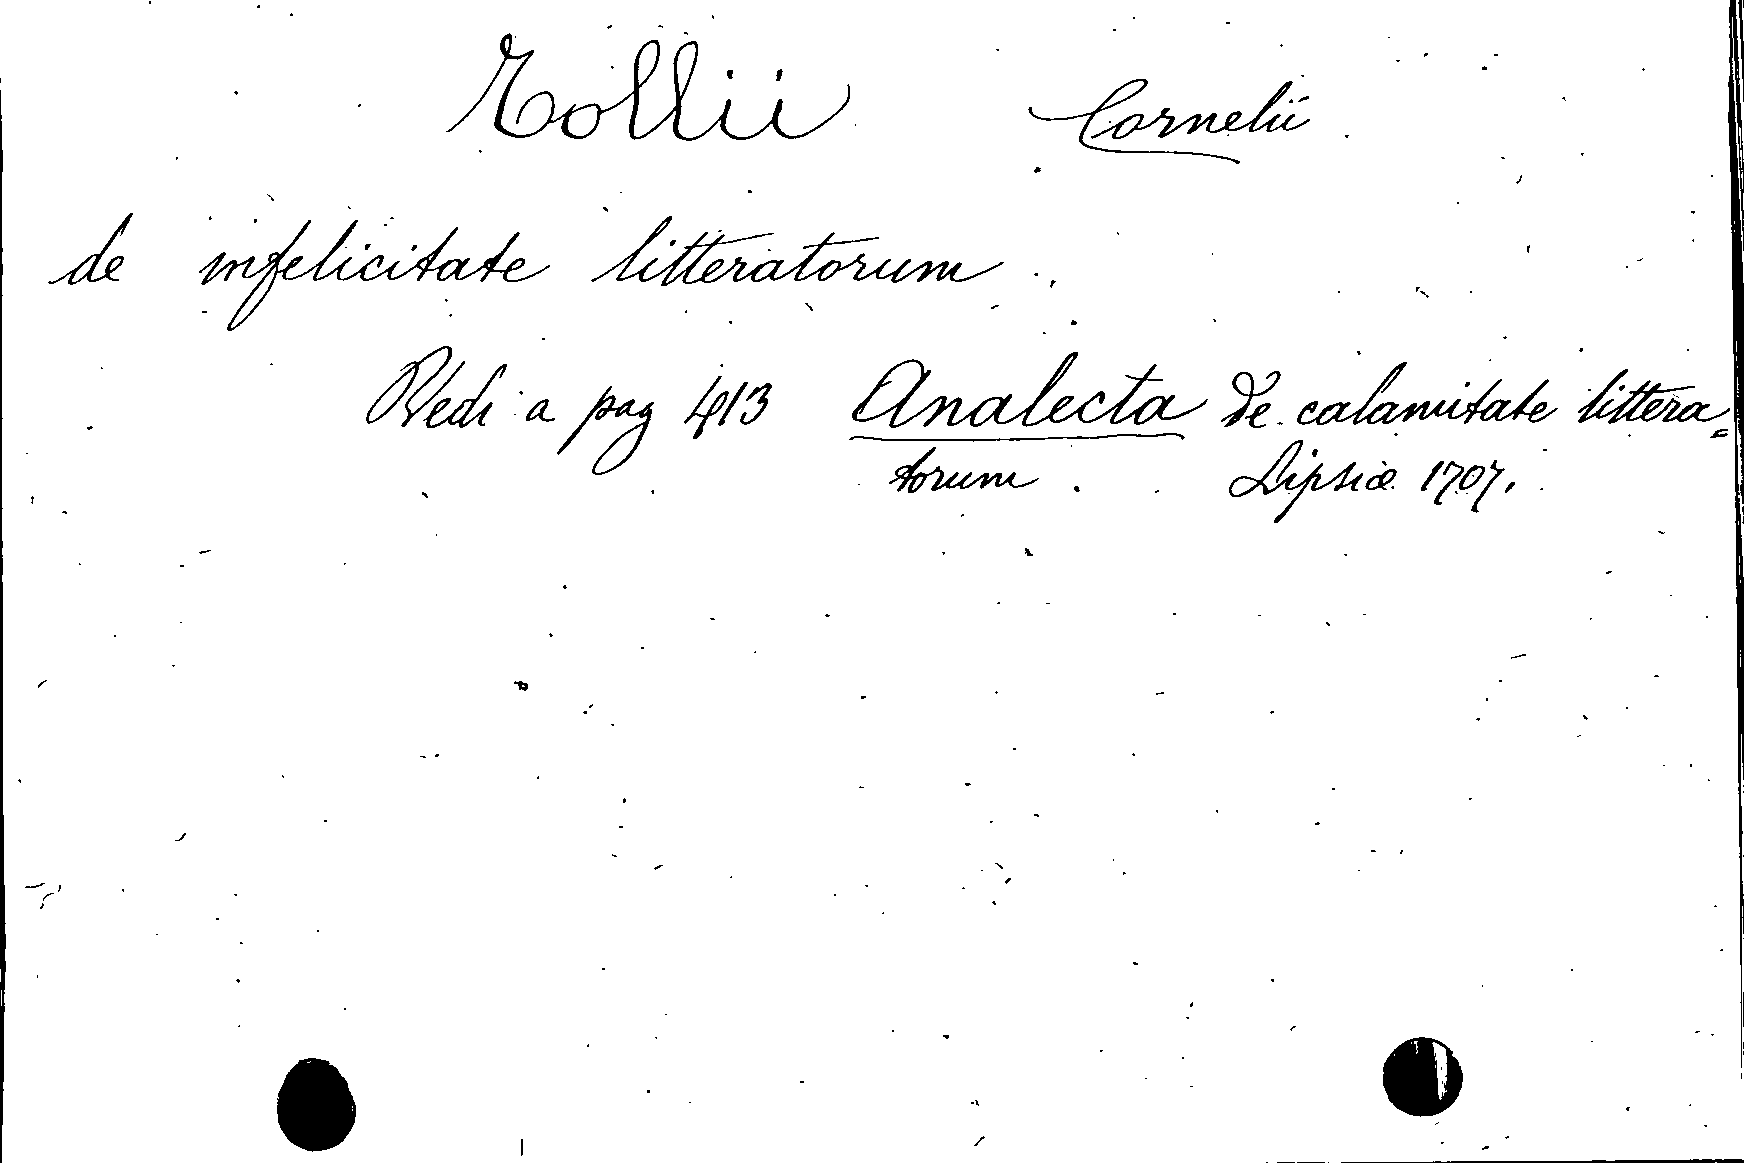 Tollii Cornelii
de infelicitate litteratorum.
Vedi a pag 413 Analecta de calamitate littera=
torum. Lipsiæ 1707.